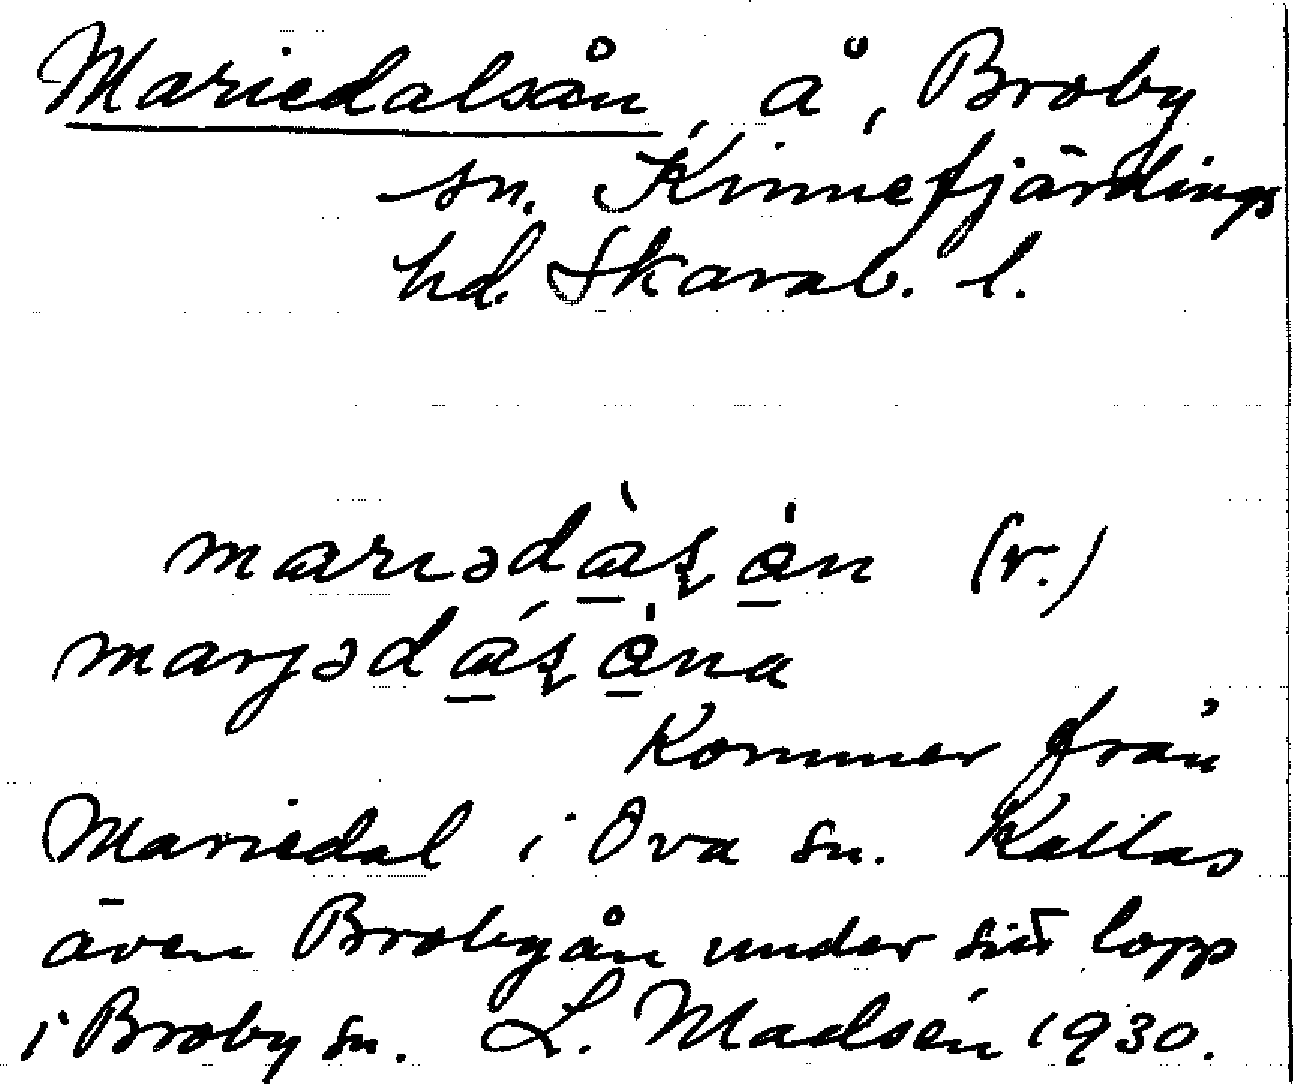 Mariedalsån, å, Broby
sn. Kinnefjärdings
hd. Skarab. l.
marıədà̱ȿȧ̱n (r.)
marȷədá̱ȿȧ̱na
Kommer från
Mariedal i Ova sn. Kallas
även Brobyån under sitt lopp
i Broby sn. L. Madsén 1930.